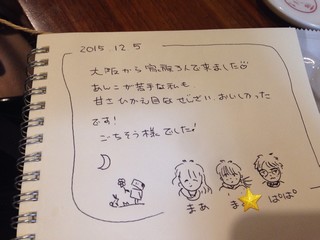 2015. 12. 5
大阪から家族3人で来ました
あんこが苦手な私も
甘さひかえ目なぜんざい、おいしかった
です!
ごちそう様でした!
まあ
ま
ぱぱ